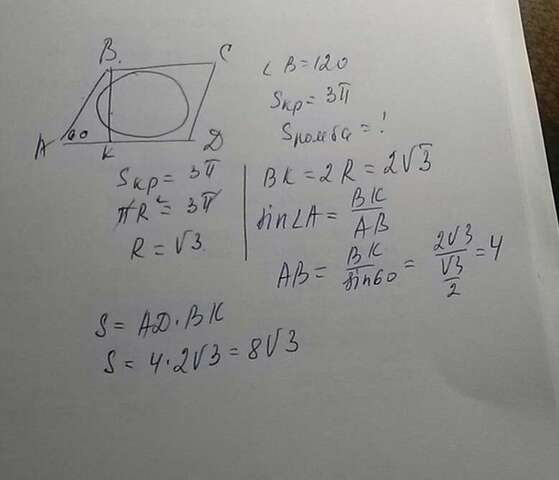 B C
60
A K D
∠ B = 120
Sкр = 3π
Sромба = ?
Sкр = 3π
πR² = 3π
R = √3.
BK = 2R = 2√3
sin∠A = BK/AB
AB = BK/sin60 = 2√3/(√3/2) = 4
S = AD · BK
S = 4 · 2√3 = 8√3